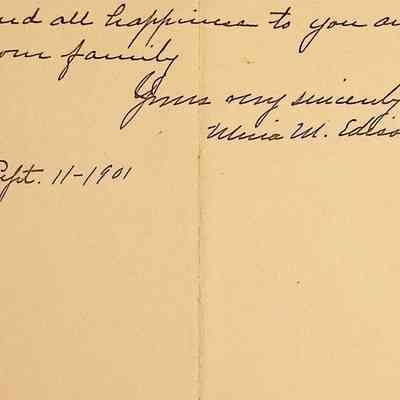 nd all happiness to you an
our family
Yours very sincerely
Mina M. Ediso
Sept. 11-1901